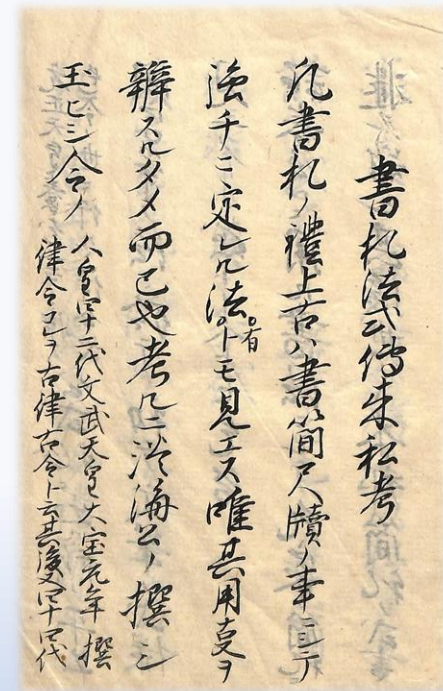 書札法式傳来私考
凡書札ノ禮上古ハ書簡尺牘ノ事ニ〆
強チニ定レル法有トモ見エス唯其用支ヲ
辨スルタメ而已也考ルニ淡海公ノ撰シ
玉ヒシ令ノ
人皇四十二代文武天皇大宝元年撰
律令已ヲ古律古令ト云其後又四十四代